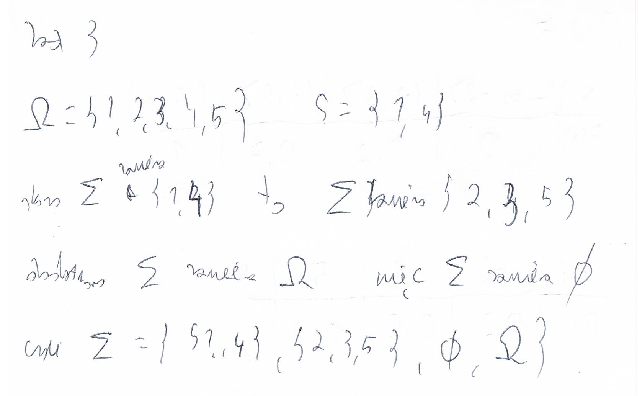 Zad 3
Ω = {1, 2, 3, 4, 5} S = {1, 4}
skoro Σ zawiera {1, 4} to Σ zawiera {2, 3, 5}
Σ zawiera Ω więc Σ zawiera ∅
czyli Σ = { {1, 4}, {2, 3, 5}, ∅, Ω }